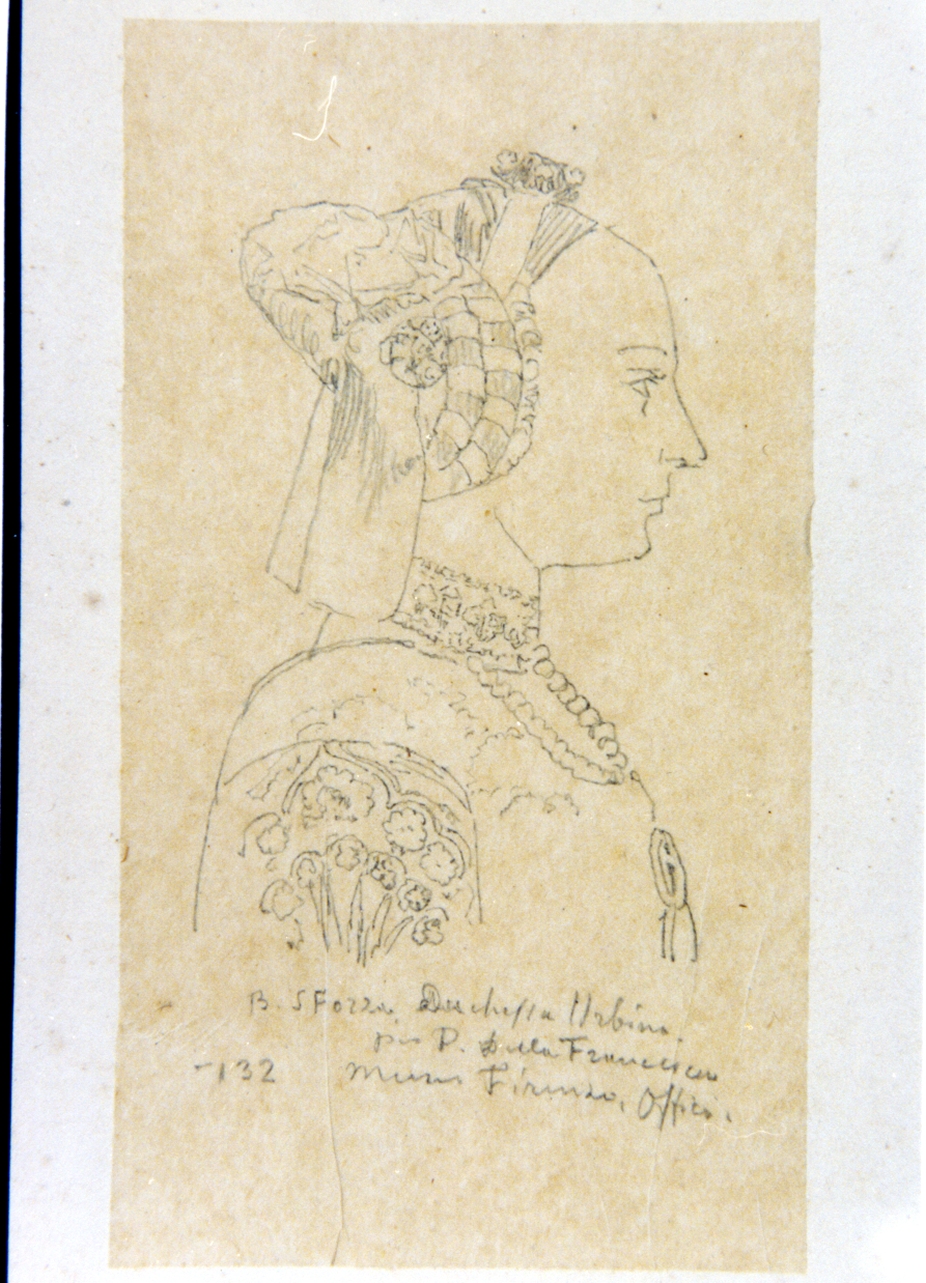 B. SForza, Duchessa Urbino
P. Della Francesca
-132
Museo Firenze, Offici.